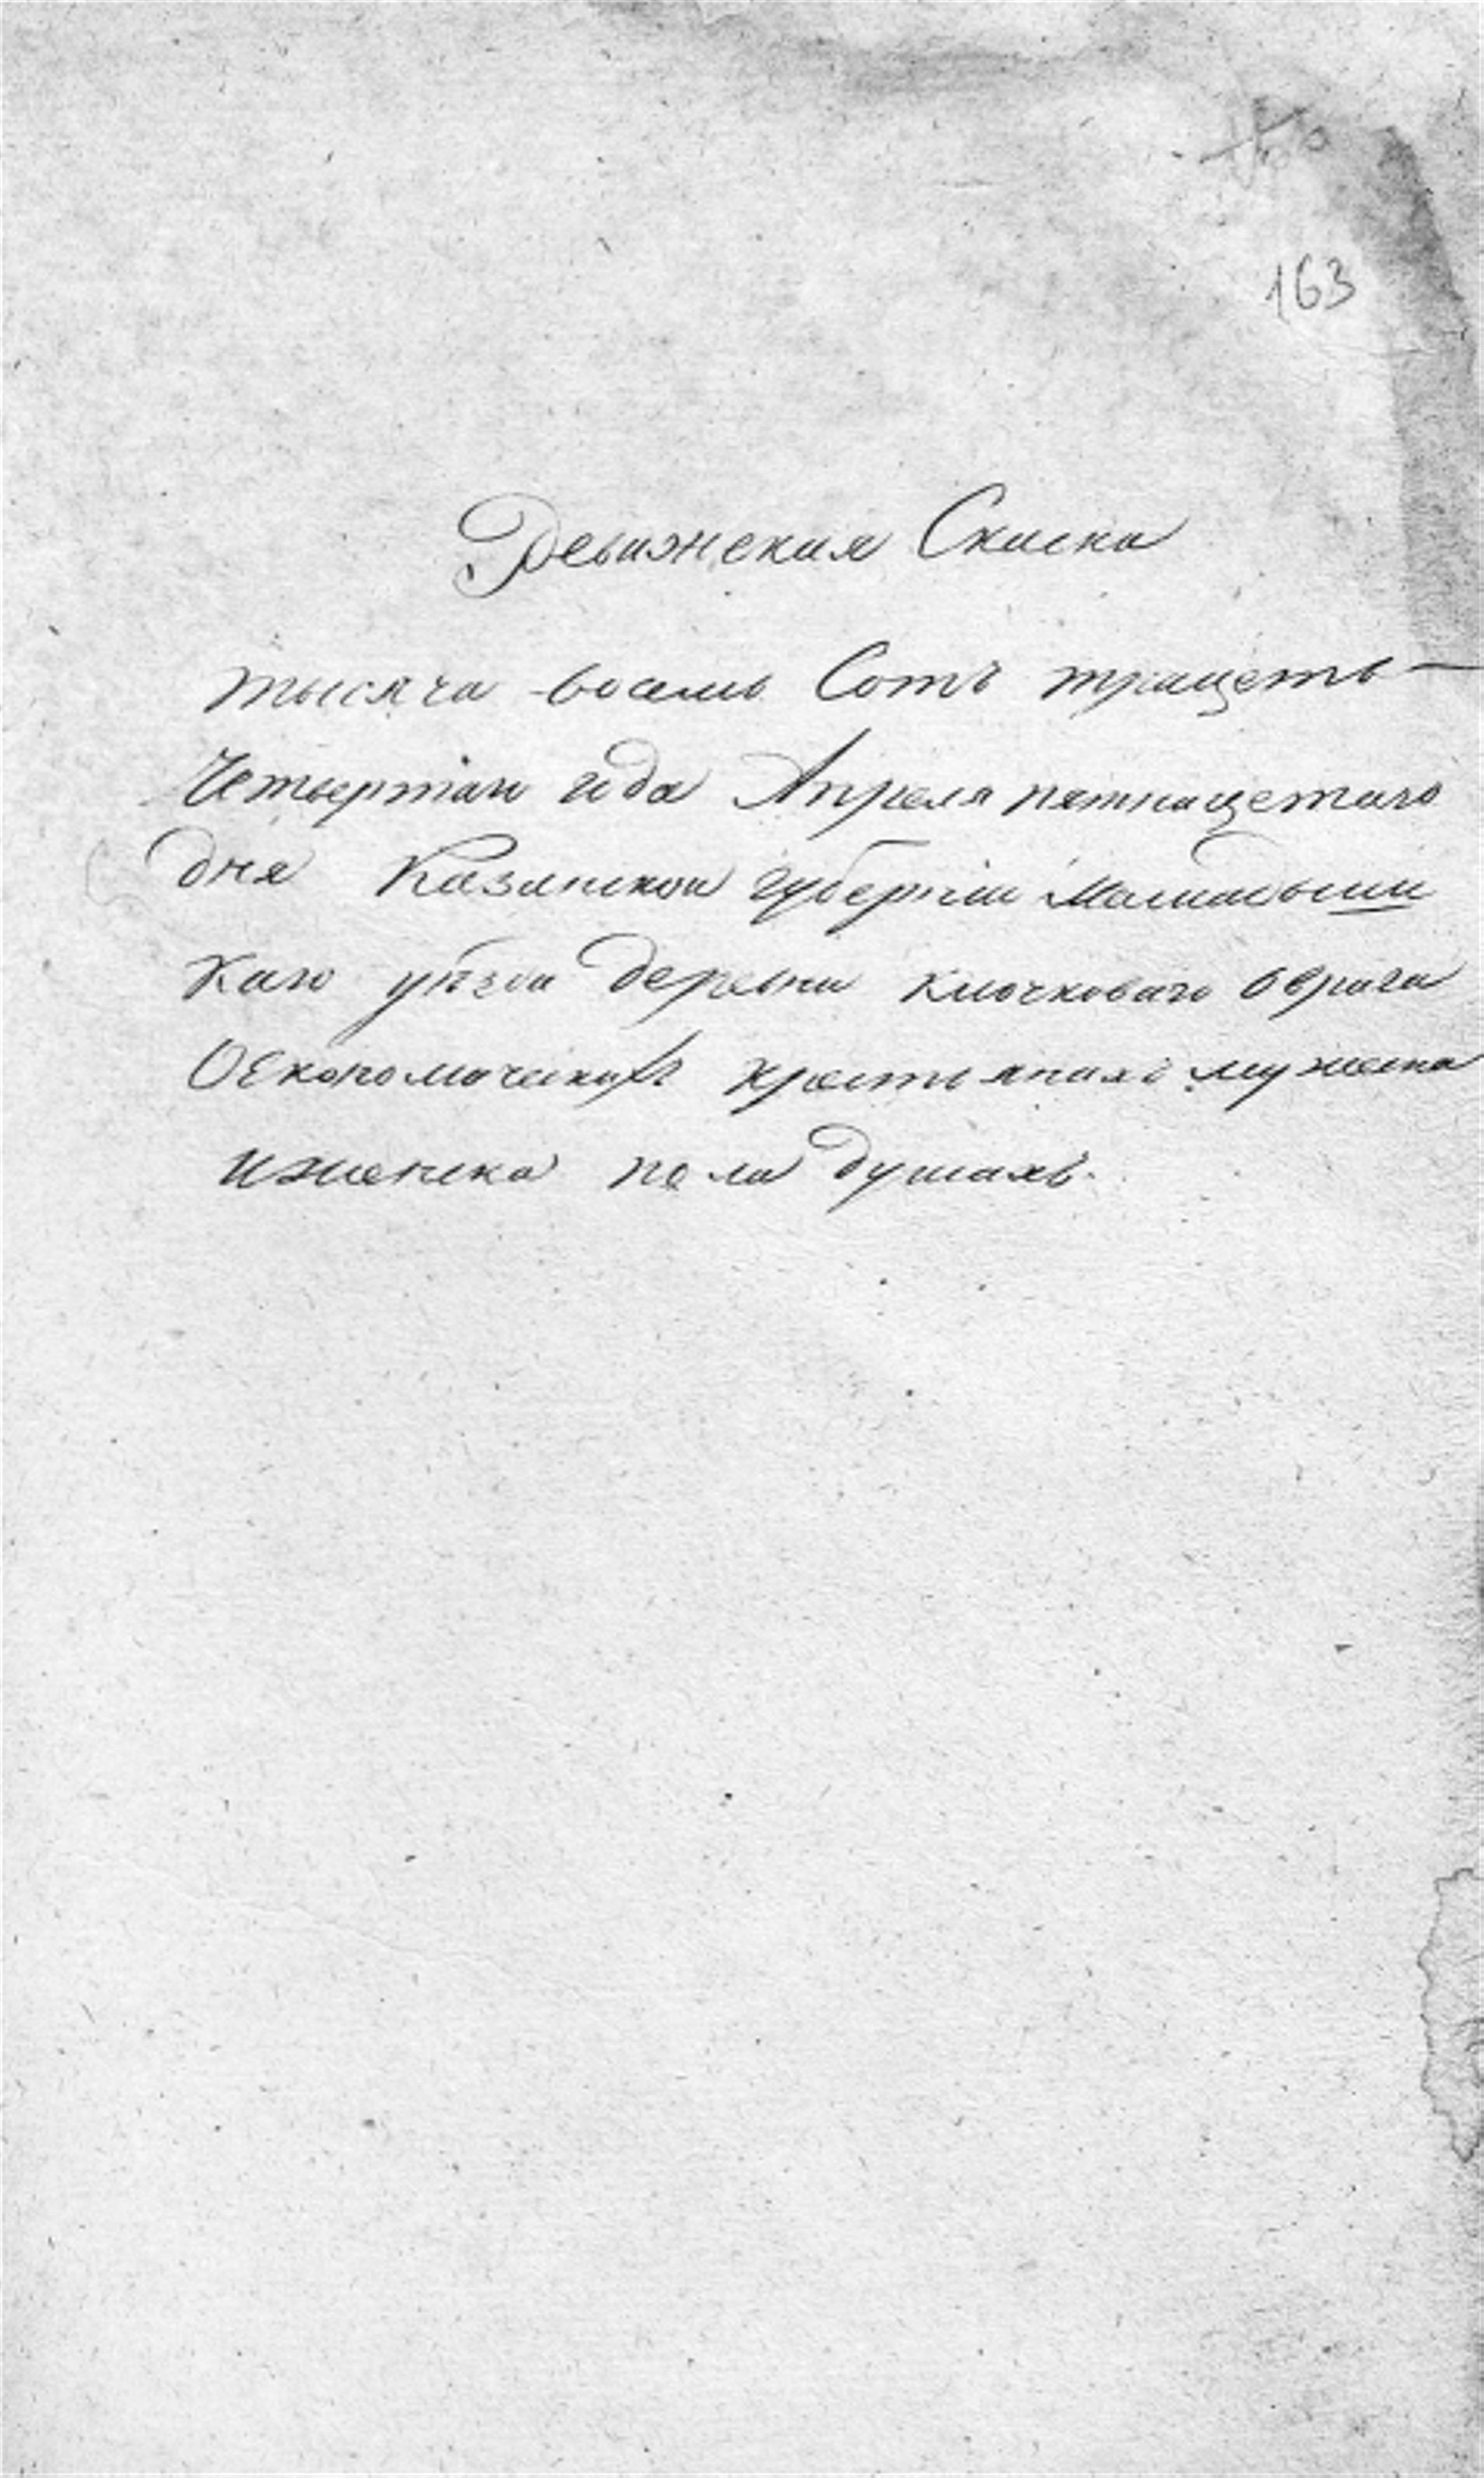 163
Ревижская Скаска
тысяча восемь Сотъ трицеть
Четвертаго года Апреля пятнацетаго
дня Казанской губернии Мамадыш
каго уѣзда деревни ключковаго оврага
Оекономическихъ крестьянахъ мужеска
иженска пола душахъ.